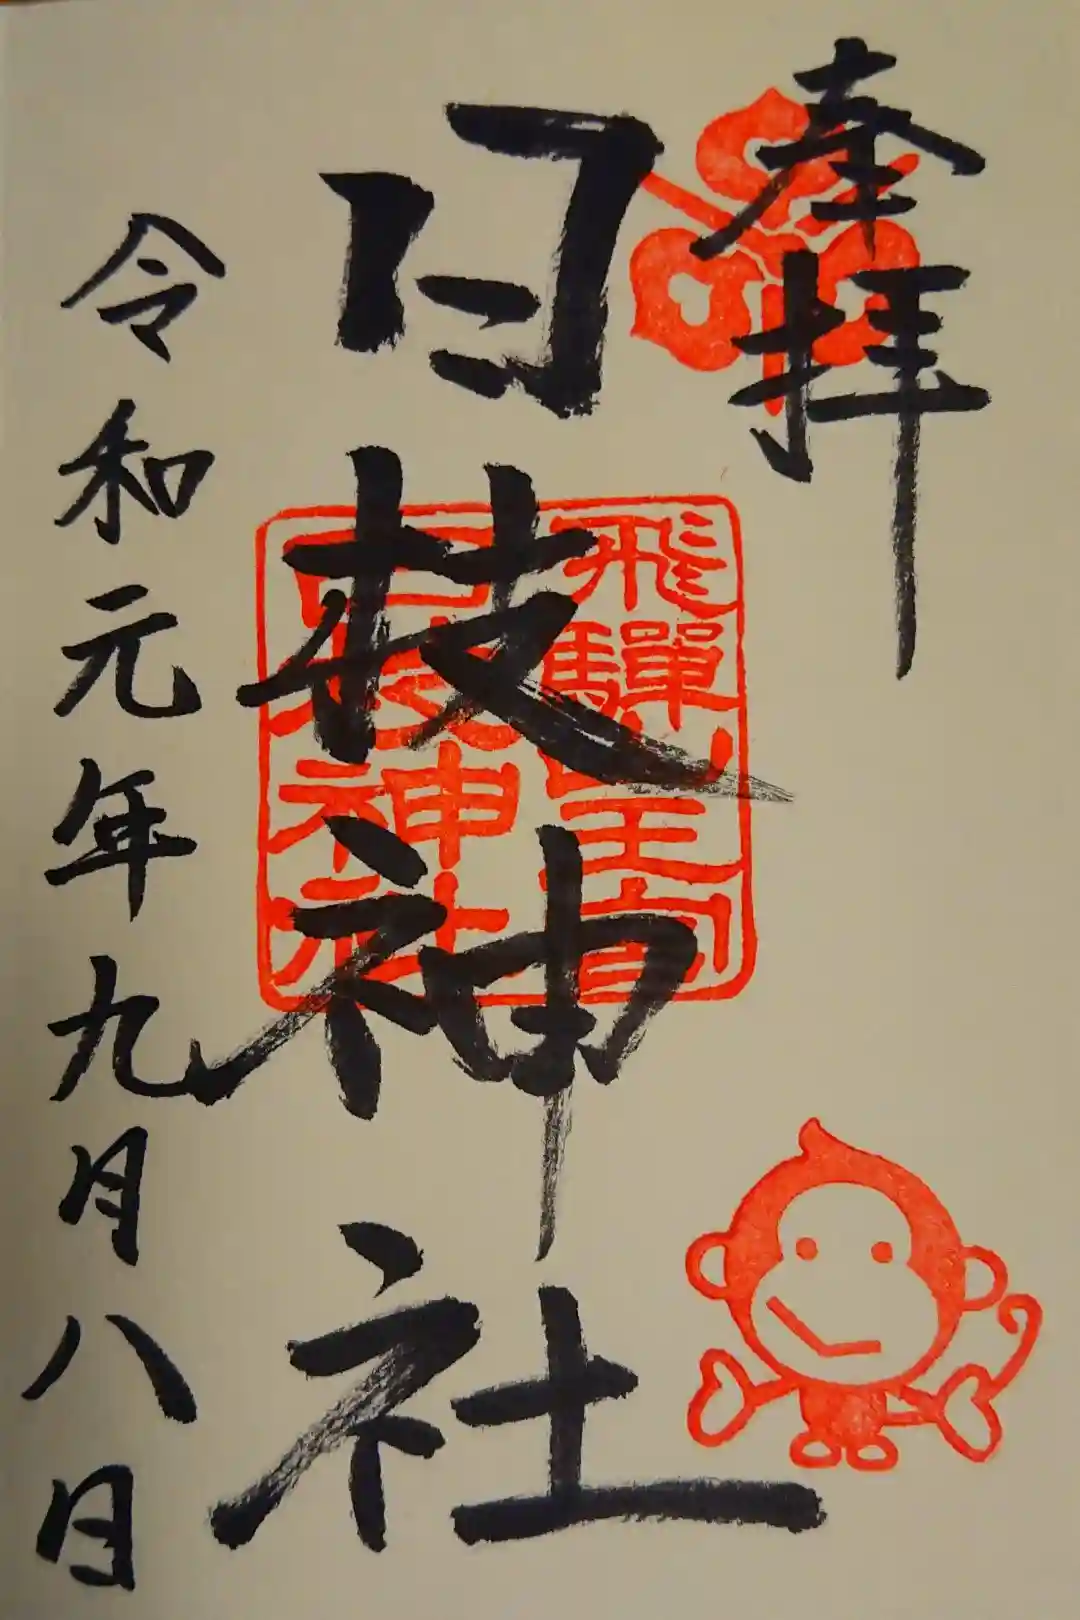 奉拝
日枝神社
飛驒山王宮
日枝神社
令和元年九月八日